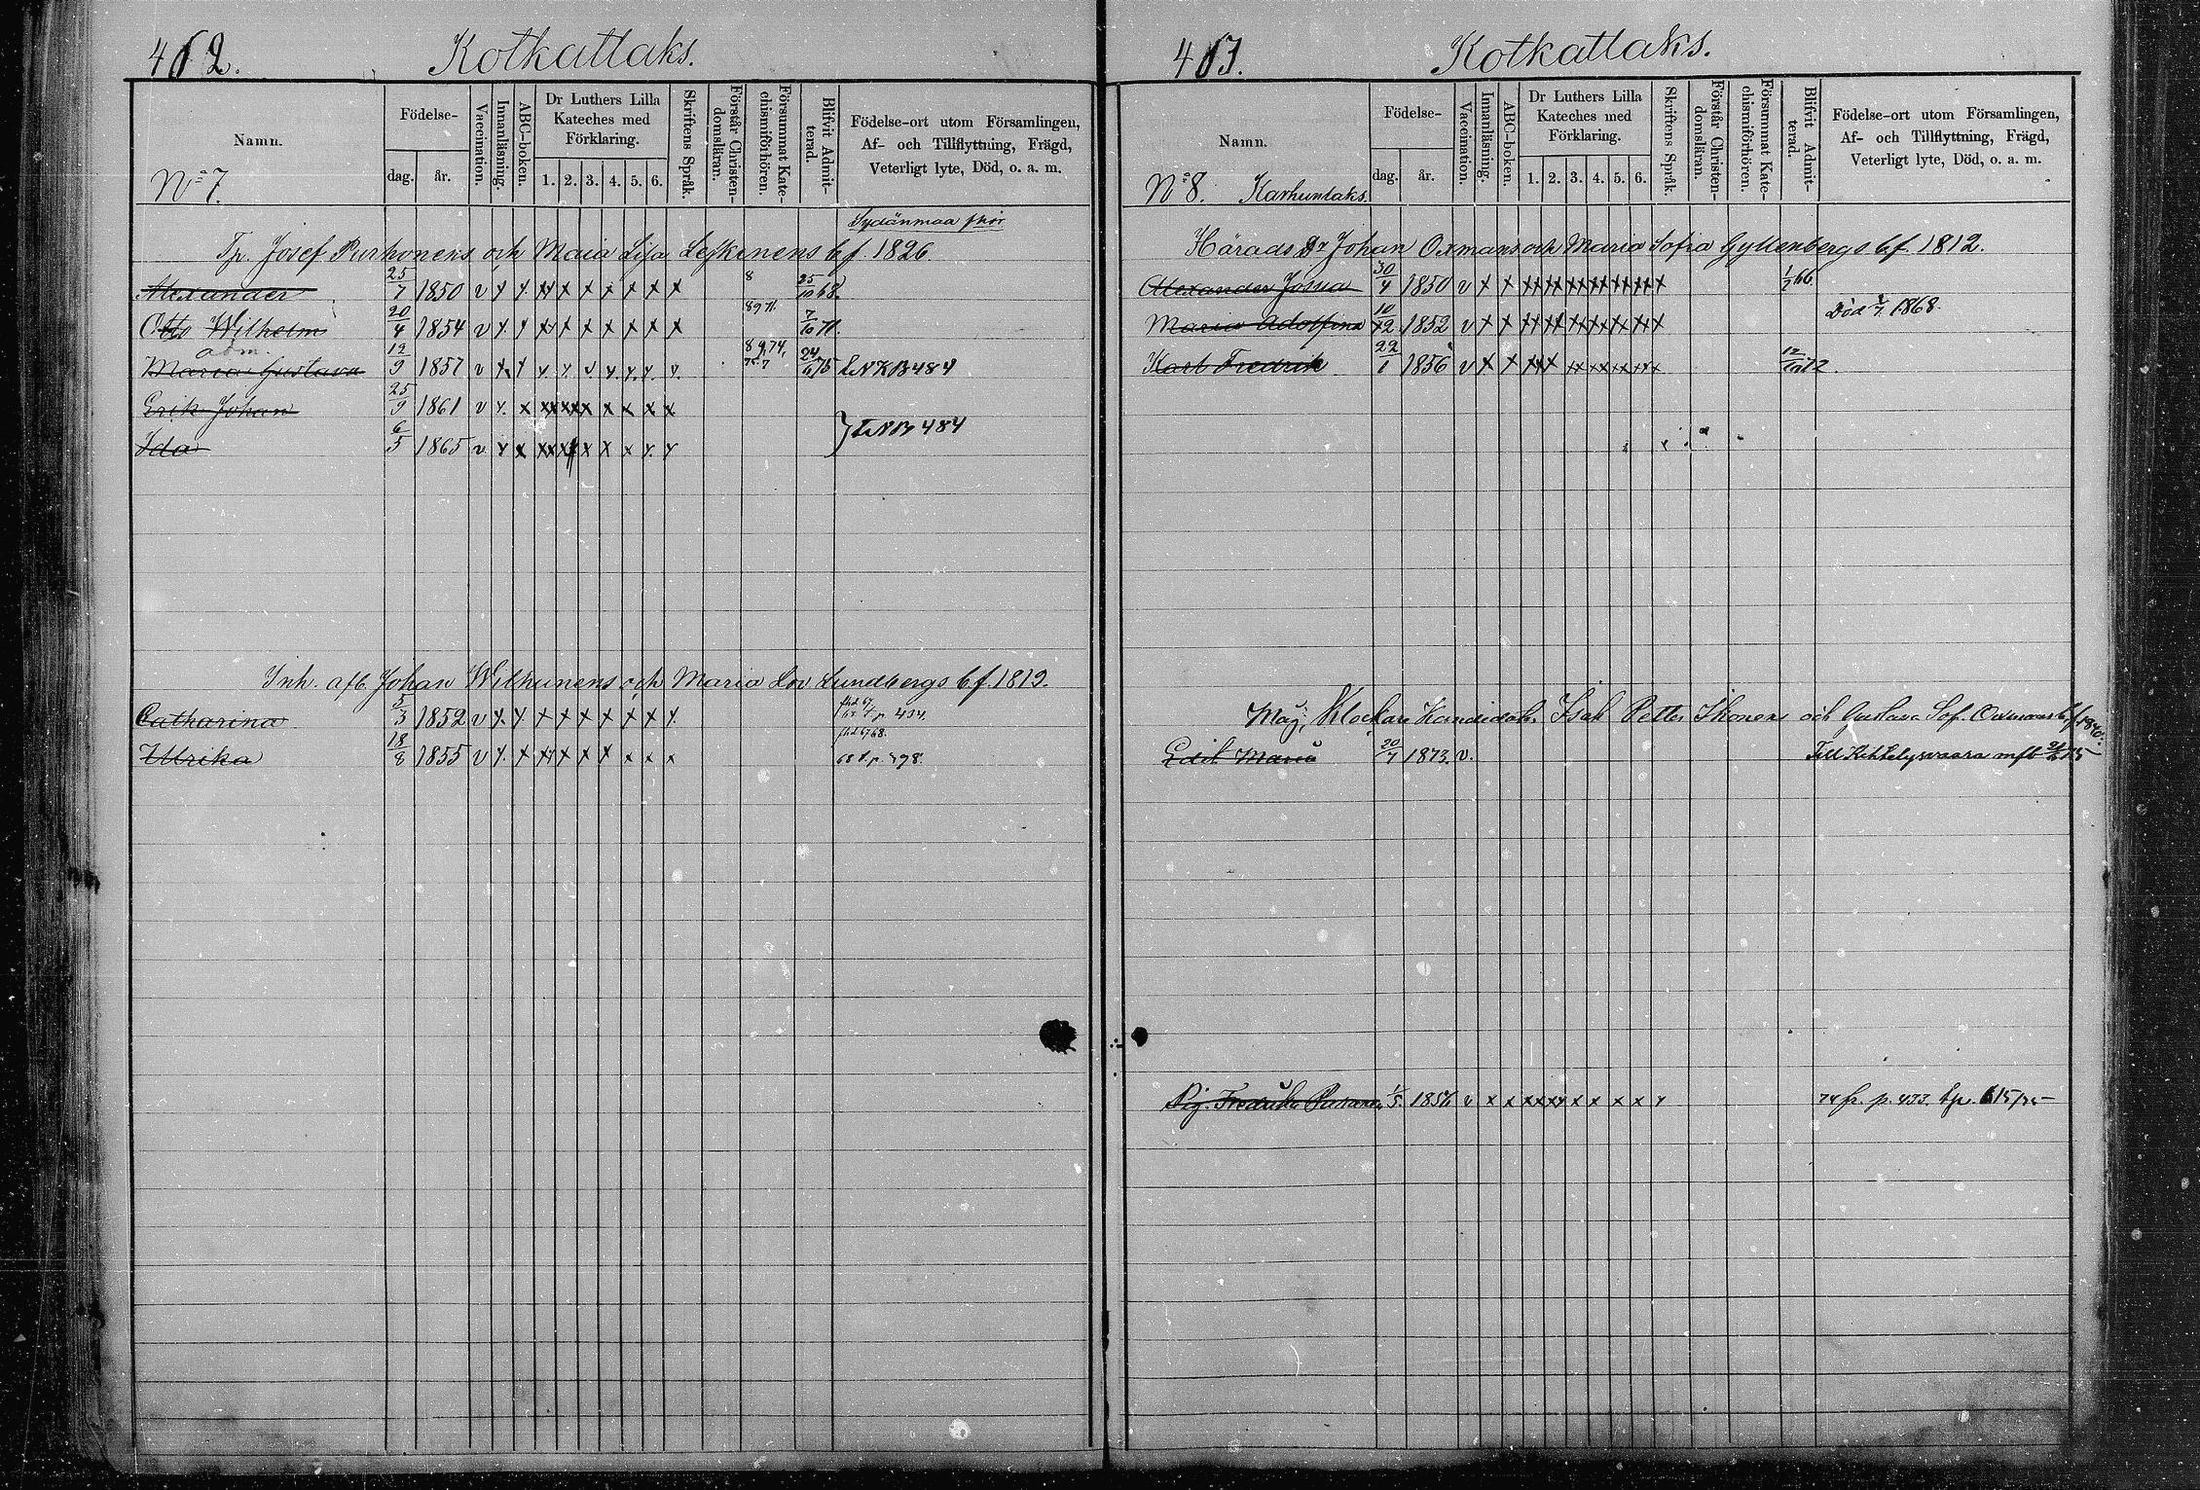 462.
Kotkatlaks.
Namn. Födelse- dag. år. Vaccination. Innanläsning. ABC-boken. Dr Luthers Lilla Kateches med Förklaring. 1. 2. 3. 4. 5. 6. Skriftens Språk. Förstår Christen-domsläran. Försummat Kate-chismiförhören. Blifvit Admit-terad. Födelse-ort utom Församlingen, Af- och Tillflyttning, Frägd, Veterligt lyte, Död, o. a. m.
No 7.
Sydänmaa
Josef Purhonens och Maria Lisa b.f. 1826
Alexander 25/7 1850 v x x x x x x x x x 8 25/10 68.
Otto Wilhelm 20/4 1854 v x x x x x x x x x 8 9 71. 7/10 71.
adm.
Maria Gustava 12/9 1857 v x x x x v x x x x 24/10 75 484
Erik Johan 25/9 1861 v x x xx xx x x x x x
Ida 6/5 1865 v x x xx x x x x x x } 484
Inh. afl. Johan Wilhunens och Maria Lov Lundbergs b.f. 1819.
Catharina 5/3 1852 v x x x x x x x x x p 434.
Ullrika 18/8 1855 v x x x x x x x x x p. 398.
463.
Kotkatlaks.
Namn. Födelse- dag. år. Vaccination. Innanläsning. ABC-boken. Dr Luthers Lilla Kateches med Förklaring. 1. 2. 3. 4. 5. 6. Skriftens Språk. Förstår Christen-domsläran. Försummat Kate-chismiförhören. Blifvit Admit-terad. Födelse-ort utom Församlingen, Af- och Tillflyttning, Frägd, Veterligt lyte, Död, o. a. m.
No 8. Karhunlaks.
Härads Dr Johan Oxmans och Maria Sofia Gyllenbergs b.f. 1812.
Alexander Josua 30/4 1850 v x x xx xx xx xx xx xx x 1/7 66.
Maria Adolfina 10/12 1852 v x x xx xx xx xx xx xx x Död 1868.
Karl Fredrik 22/1 1856 v x x xx x xx xx xx xx x 12/10 72.
Måg, Klockare Kandidat. Isak Petter Ikonens och Gustava Sof. Oxmans b.f.
Edit Maria 20/7 1873. v. Till Kihtelysvaara mfb
Pig. Fredrika 1/5. 1856 v x x xx xx x x x x x 74 fr. p. 433. 615/75